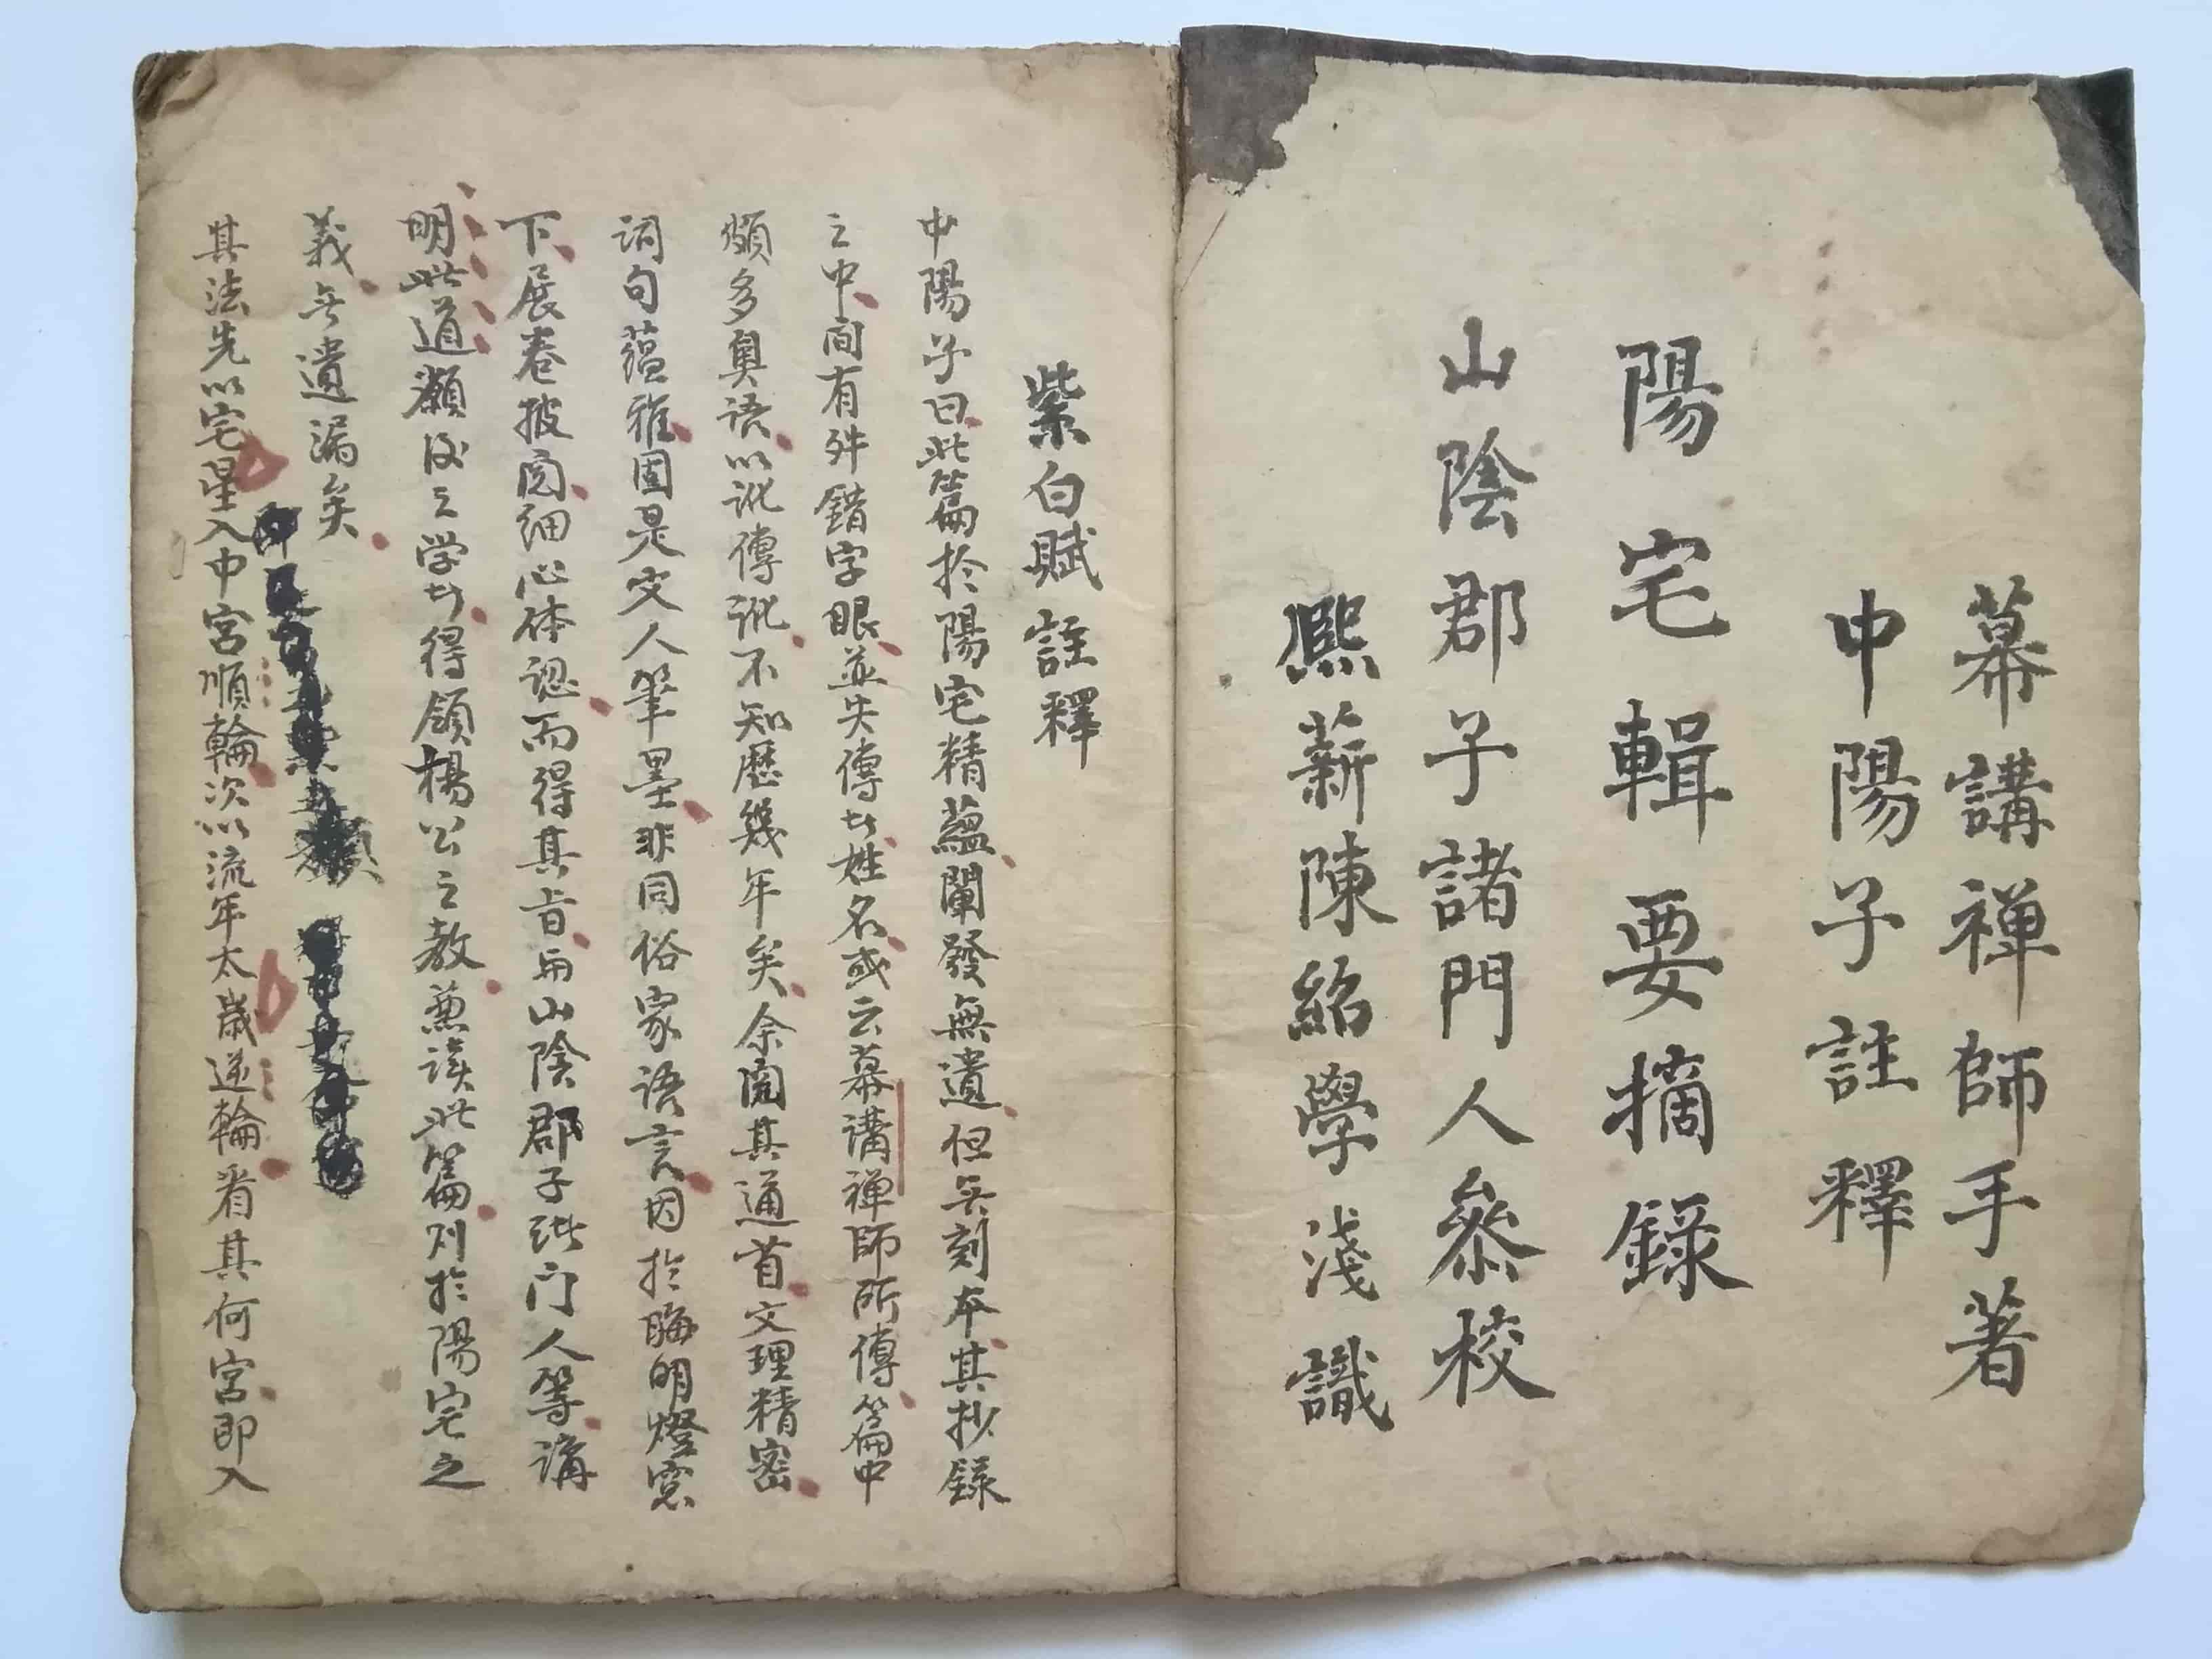 幕講禅師手著
中陽子註釋
陽宅輯要摘錄
山陰郡子諸門人叅校
熙薪陳紹學淺識
紫白賦註釋
中陽子曰此篇於陽宅精蘊闡發無遺但无刻本其抄錄
之中间有舛錯字眼並失傳姓名或云幕講禅師所傳篇中
頗多奥语以訛傳訛不知歷幾年矣余閲其通首文理精密
词句蕴雅固是文人筆墨非同俗家语言因於晦明燈窓
下展卷披阅细心体認而得其旨与山陰郡子諸门人等講
明此道願後之学得領楊公之教兼读此篇则於陽宅之
義无遺漏矣
其法先以宅星入中宮順輪次以流年太歲逆輪看其何宮即入